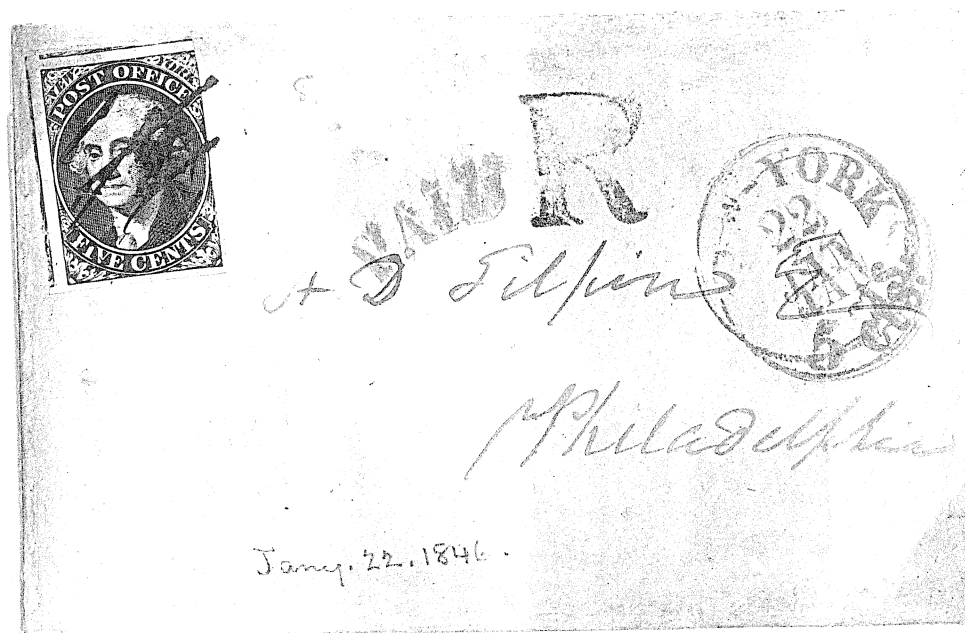 NEW YORK
POST OFFICE
FIVE CENTS
PAID
R
-YORK
22
JAN
5 cts
D Gilpin
Philadelphia
Jany. 22. 1846.